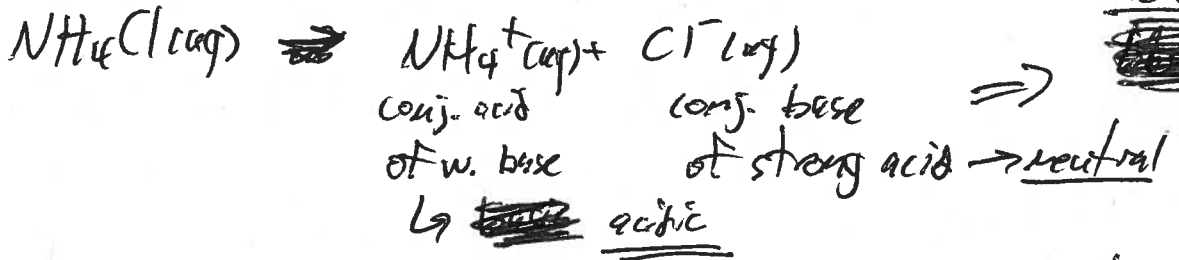 NH4Cl(aq) → NH4+(aq) + Cl-(aq)
conj. acid conj. base ⇒
of w. base of strong acid → neutral
↳ acidic